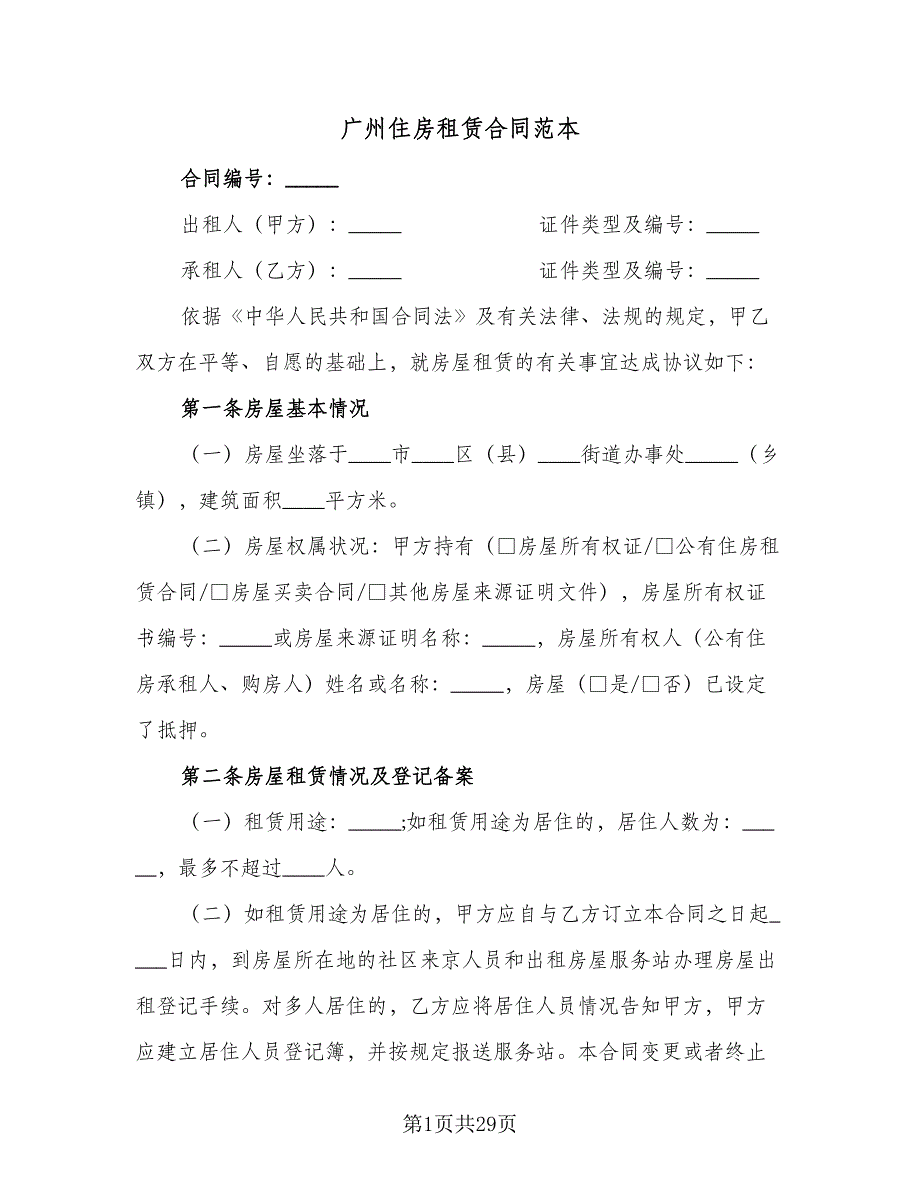 广州住房租赁合同范本
合同编号：_____
出租人（甲方）：_____ 证件类型及编号：_____
承租人（乙方）：_____ 证件类型及编号：_____
依据《中华人民共和国合同法》及有关法律、法规的规定，甲乙
双方在平等、自愿的基础上，就房屋租赁的有关事宜达成协议如下：
第一条房屋基本情况
（一）房屋坐落于____市____区（县）____街道办事处_____（乡
镇），建筑面积____平方米。
（二）房屋权属状况：甲方持有（□房屋所有权证/□公有住房租
赁合同/□房屋买卖合同/□其他房屋来源证明文件），房屋所有权证
书编号：_____或房屋来源证明名称：_____，房屋所有权人（公有住
房承租人、购房人）姓名或名称：_____，房屋（□是/□否）已设定
了抵押。
第二条房屋租赁情况及登记备案
（一）租赁用途：_____;如租赁用途为居住的，居住人数为：___
__，最多不超过____人。
（二）如租赁用途为居住的，甲方应自与乙方订立本合同之日起_
___日内，到房屋所在地的社区来京人员和出租房屋服务站办理房屋出
租登记手续。对多人居住的，乙方应将居住人员情况告知甲方，甲方
应建立居住人员登记簿，并按规定报送服务站。本合同变更或者终止
第1页共29页